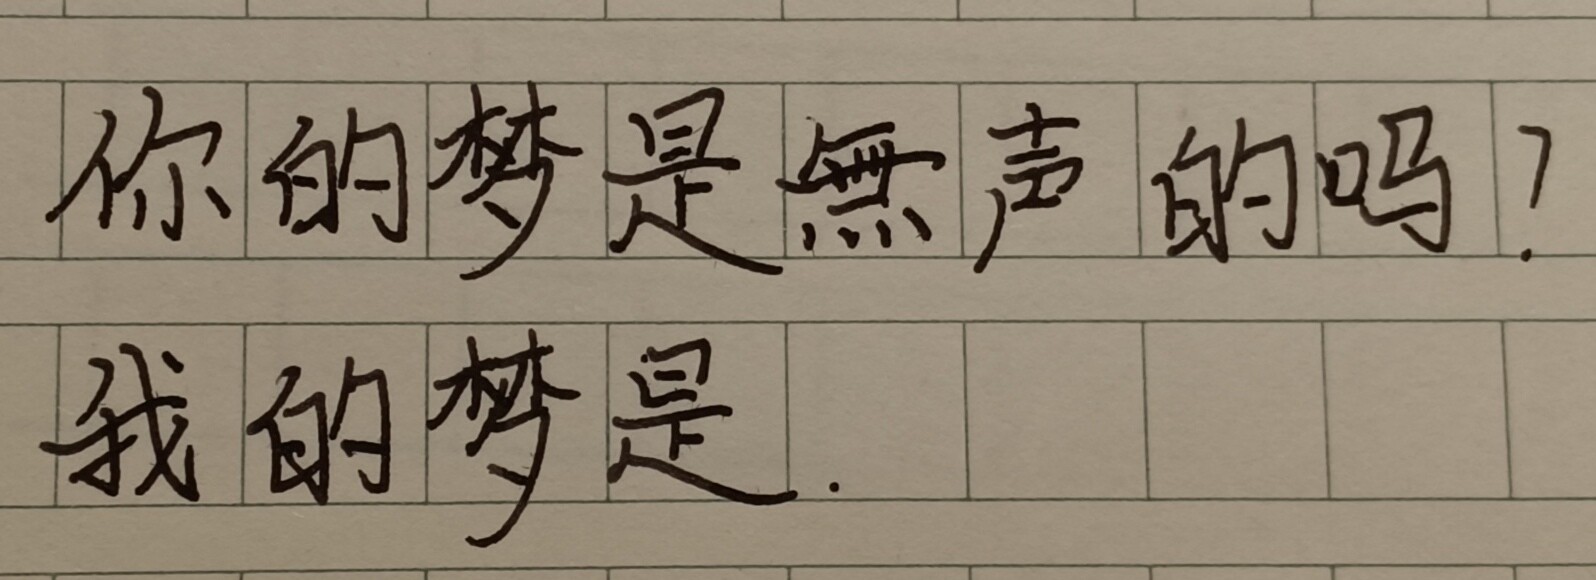 你的梦是無声的吗?
我的梦是.